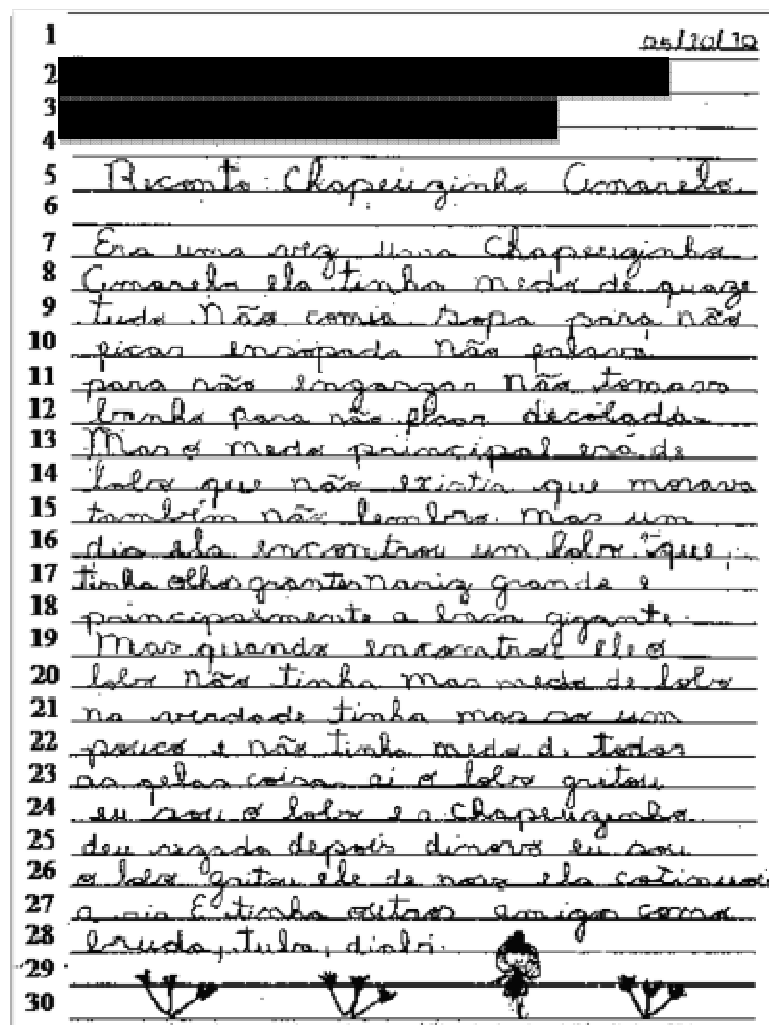 1
05/10/10
2
3
4
5 Reconto: Chapeuzinho Amarelo.
6
7 Era uma vez uma Chapeuzinho
8 Amarelo ela tinha medo de quaze
9 tudo Não comia sopa para não
10 ficar ensopada Não falava
11 para não engasgar Não tomava
12 banho para não ficar decolada
13 Mas o medo principal era de
14 lobo que não existia que morava
15 também não lembro. Mas um
16 dia ela encontrou um lobo que
17 tinha olhos grantes Nariz grande e
18 principalmente a boca gigante.
19 Mas quando encontrou ele o
20 lobo Não tinha mas medo de lobo
21 na verdade tinha mas so um
22 pouco e não tinha medo d. todas
23 as coisa ai o lobo gritou
24 eu sou o lobo e a Chapeuzinho
25 deu depois dinovo eu sou
26 o lobo gritou ele de novo ela cotinuou
27 a ria E tinha outros amigos como
28 bruda, tuba, diabi.
29
30